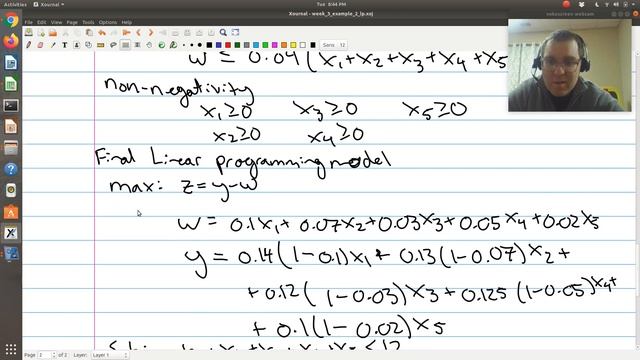 Activities
Xournal
Tue 8:44 PM
Xournal - week_3_example_2_lp.xoj
File Edit View Page Tools Options Help
Sans 12
w = 0.04(x₁+x₂+x₃+x₄+x₅
non-negativity
x₁≥0 x₃≥0 x₅≥0
x₂≥0 x₄≥0
Final Linear programming model
max: z=y-w
w = 0.1x₁+0.07x₂+0.03x₃+0.05x₄+0.02x₅
y = 0.14(1-0.1)x₁+0.13(1-0.07)x₂+
+0.12(1-0.03)x₃+0.125(1-0.05)x₄+
+0.1(1-0.02)x₅
Page 2 of 2 Layer: Layer 1